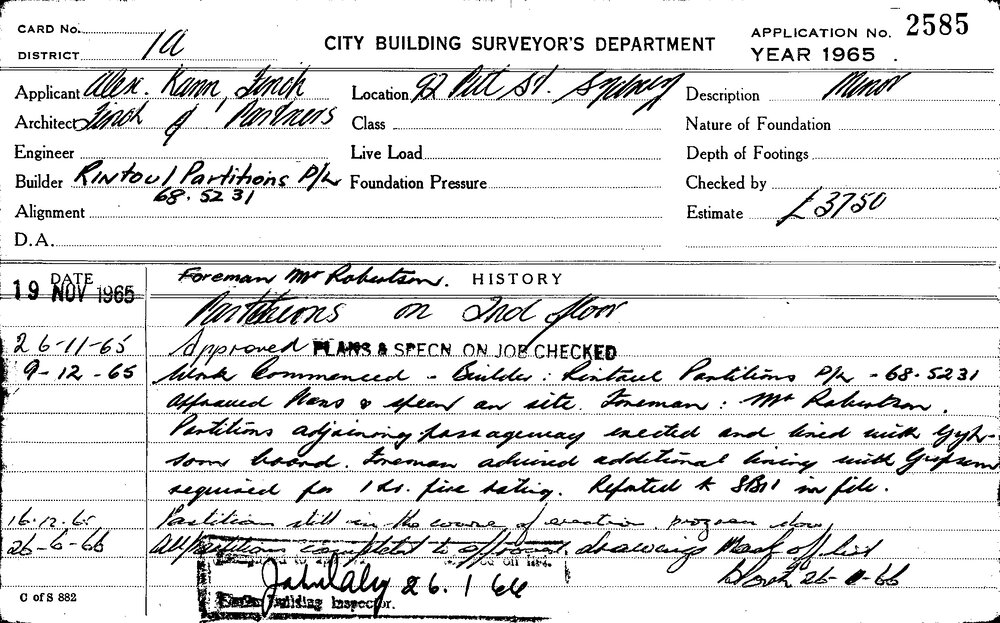 CARD No.
DISTRICT 1a
CITY BUILDING SURVEYOR'S DEPARTMENT
APPLICATION No. 2585
YEAR 1965.
Applicant Alex. Kann, Finch
Location 92 Pitt St. Sydney
Description Minor
Architect Finch & Partners
Class
Nature of Foundation
Engineer
Live Load
Depth of Footings
Builder Rintoul Partitions P/L
68.5231
Foundation Pressure
Checked by
Alignment
Estimate £3750
D.A.
DATE
Foreman Mr Robertson.
HISTORY
19 NOV 1965
Partitions on 2nd floor
26-11-65 Approved PLANS & SPECN ON JOB CHECKED
9-12-65 Work Commenced - Builder: Rintoul Partitions P/L - 68.5231
approved Plans & specn on site. Foreman: Mr Robertson.
Partitions adjoining passageway erected and lined with Gyp-
som board. Foreman advised additional lining with Gypsum
required for 1 hr. fire rating. Reported to SBI in file.
16.12.65 Partition still in the course of erection. progress slow,
26-6-66 All partitions completed to approved drawings Mark off list
26- -66
John Daly 26.1.66
Building Inspector.
C of S 882